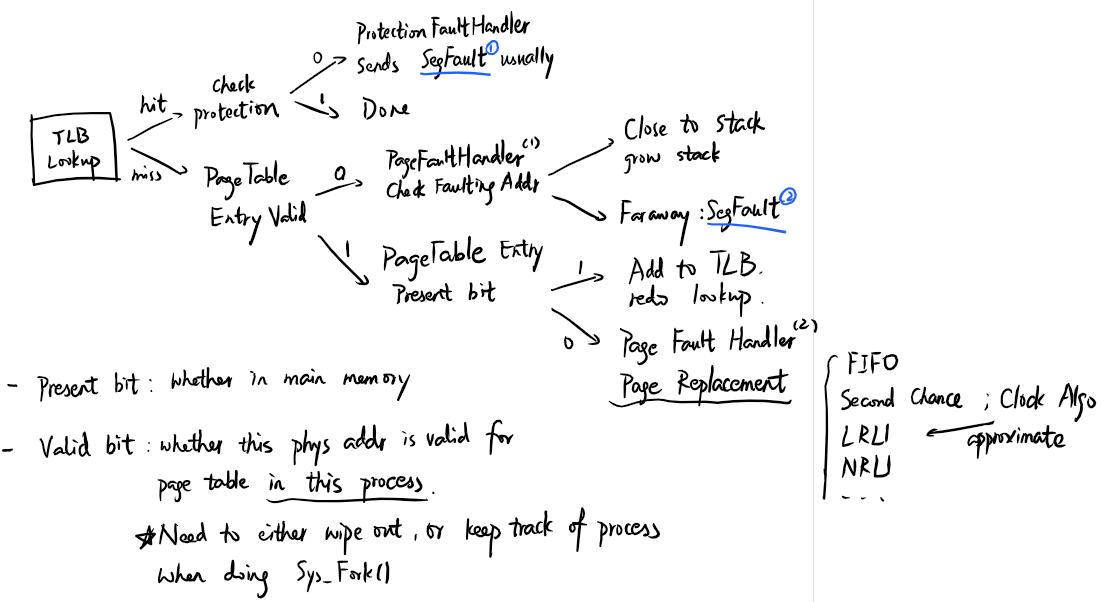 Protection Fault Handler
0 Sends SegFault ① usually
check
hit protection
1 Done
TLB
Lookup
miss
PageTable
Entry Valid
0 PageFaultHandler (1)
Check Faulting Addr
Close to stack
grow stack
Faraway : SegFault ②
1 PageTable Entry
Present bit
1 Add to TLB.
redo lookup.
0 Page Fault Handler (2)
Page Replacement
FIFO
Second Chance ; Clock Algo
LRU approximate
NRU
- - - -
- Present bit : whether in main memory
- Valid bit : whether this phys addr is valid for
page table in this process.
* Need to either wipe out, or keep track of process
when doing Sys_Fork()